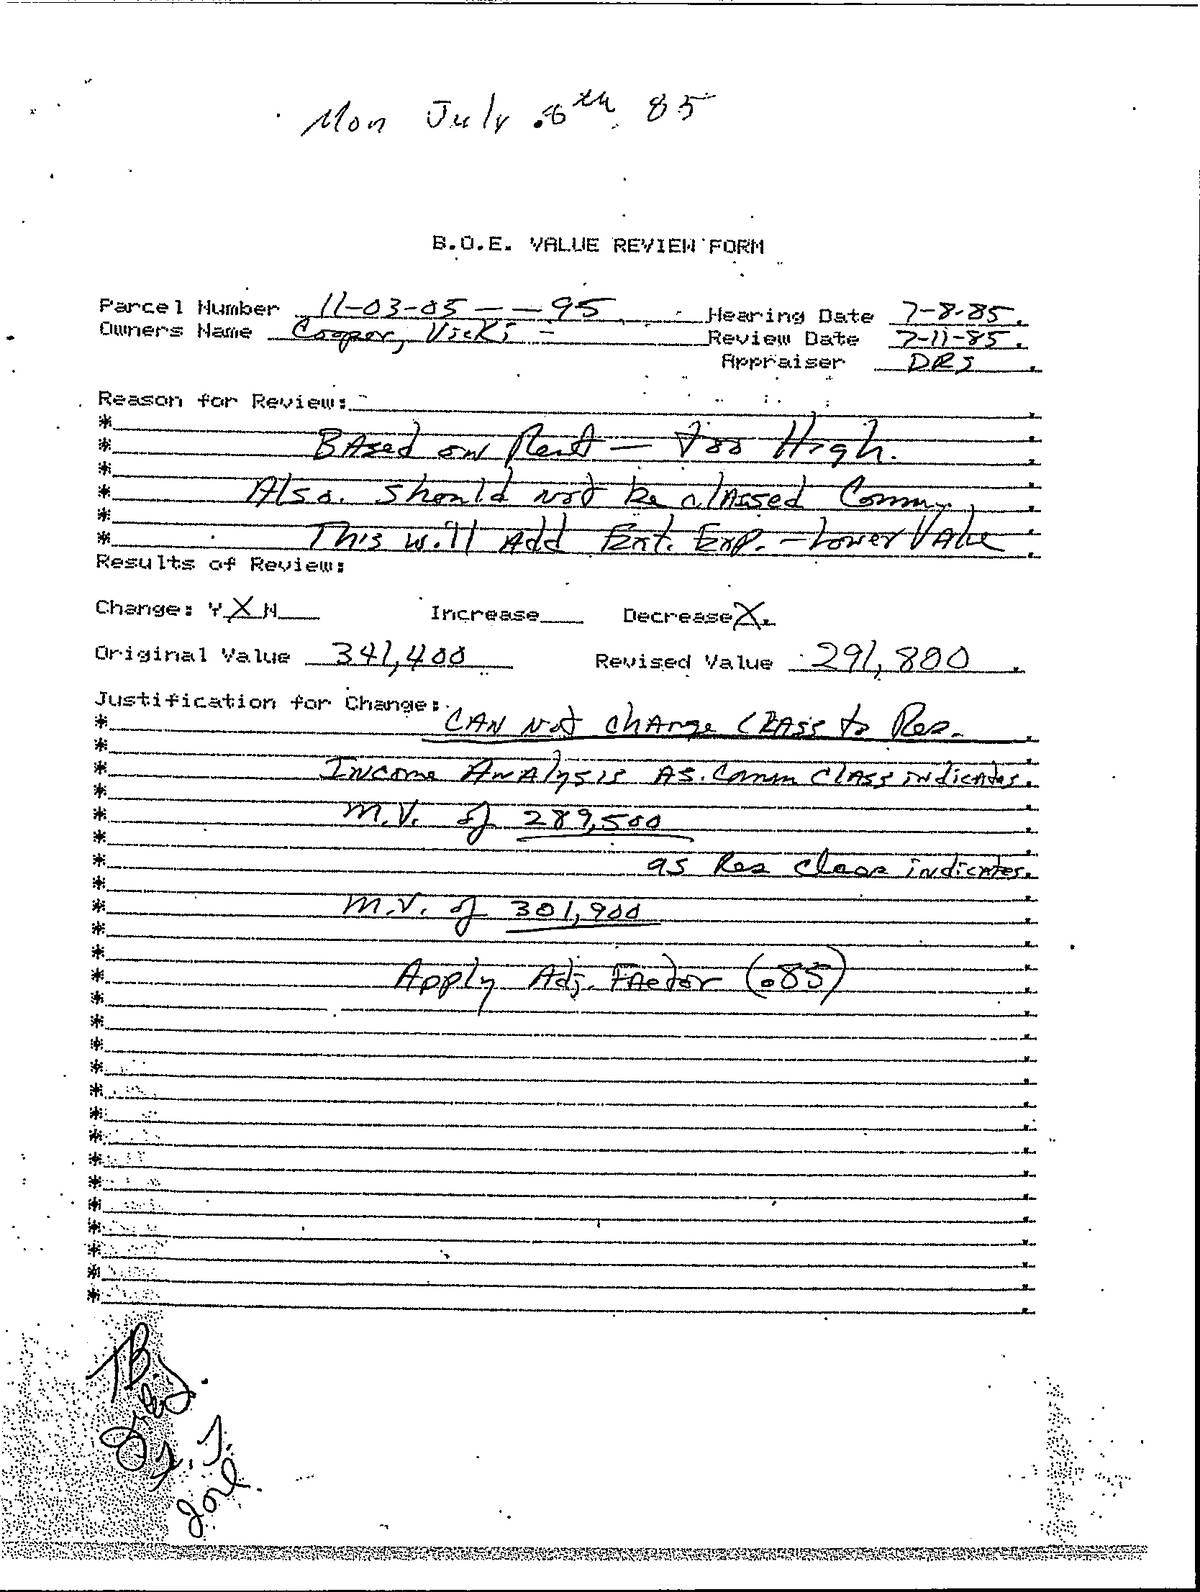 Mon July 8th 85
B.O.E. VALUE REVIEW FORM
Parcel Number 11-03-05 — — 95 Hearing Date 7-8-85.
Owners Name Cooper, Vicki - Review Date 7-11-85.
Appraiser DRS
Reason for Review:
* BAsed on Rent — Too High.
* Also. should not be clAssed Comm,
* This will Add Ext. Exp. — Lower VAlue
Results of Review:
Change: Y X N___ Increase___ Decrease X.
Original Value 341,400 Revised Value 291,800.
Justification for Change:
* CAN Not chAnge ClAss to Res.
* INcome ANAlysis AS. Comm ClAss indicAtes.
* M.V. of 289,500
* as Res Class indicates.
* M.V. of 301,900
* Apply Adj. FActor (.85)
T.
Joel